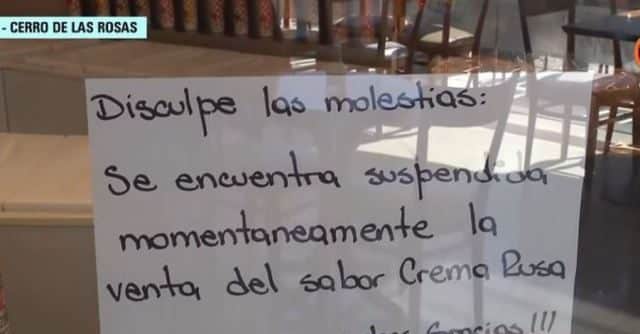 - CERRO DE LAS ROSAS
Disculpe las molestias:
Se encuentra suspendida
momentaneamente la
venta del sabor Crema Rusa
Gracias!!!